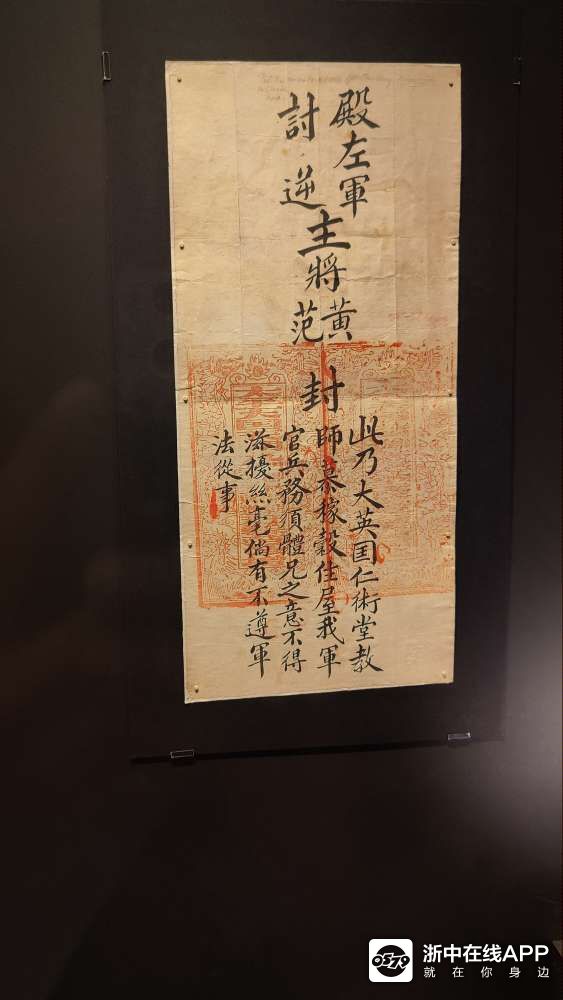 殿左軍
討逆
主將
黃
范
封
此乃大英囯仁術堂教
師慕稼穀住屋我軍
官兵務須體兄之意不得
滋擾絲毫倘有不遵軍
法從事
0579
浙中在线APP
就在你身边